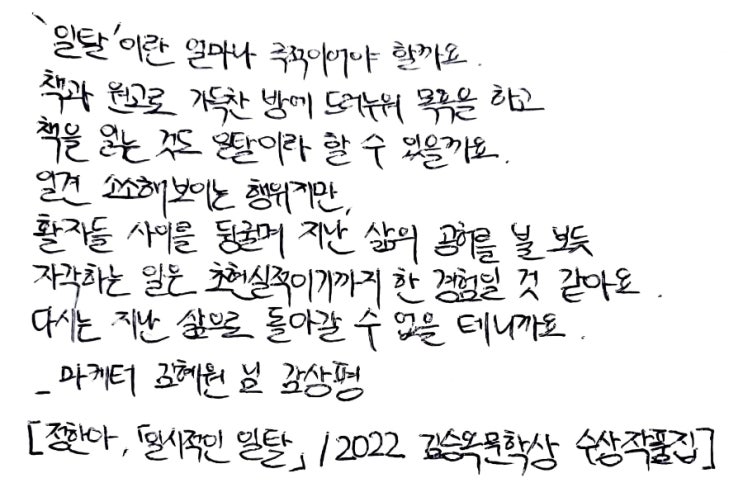 '일탈'이란 얼마나 극적이어야 할까요.
책과 원고로 가득찬 방에 드러누워 목욕을 하고
책을 읽는 것도 일탈이라 할 수 있을까요.
일견 소소해보이는 행위지만,
활자들 사이를 뒹굴며 지난 삶의 공허를 불 보듯
자각하는 일은 초현실적이기까지 한 경험일 것 같아요.
다시는 지난 삶으로 돌아갈 수 없을 테니까요.
_ 마케터 김혜원 님 감상평
[정한아, 「일시적인 일탈」 / 2022 김승옥문학상 수상작품집]